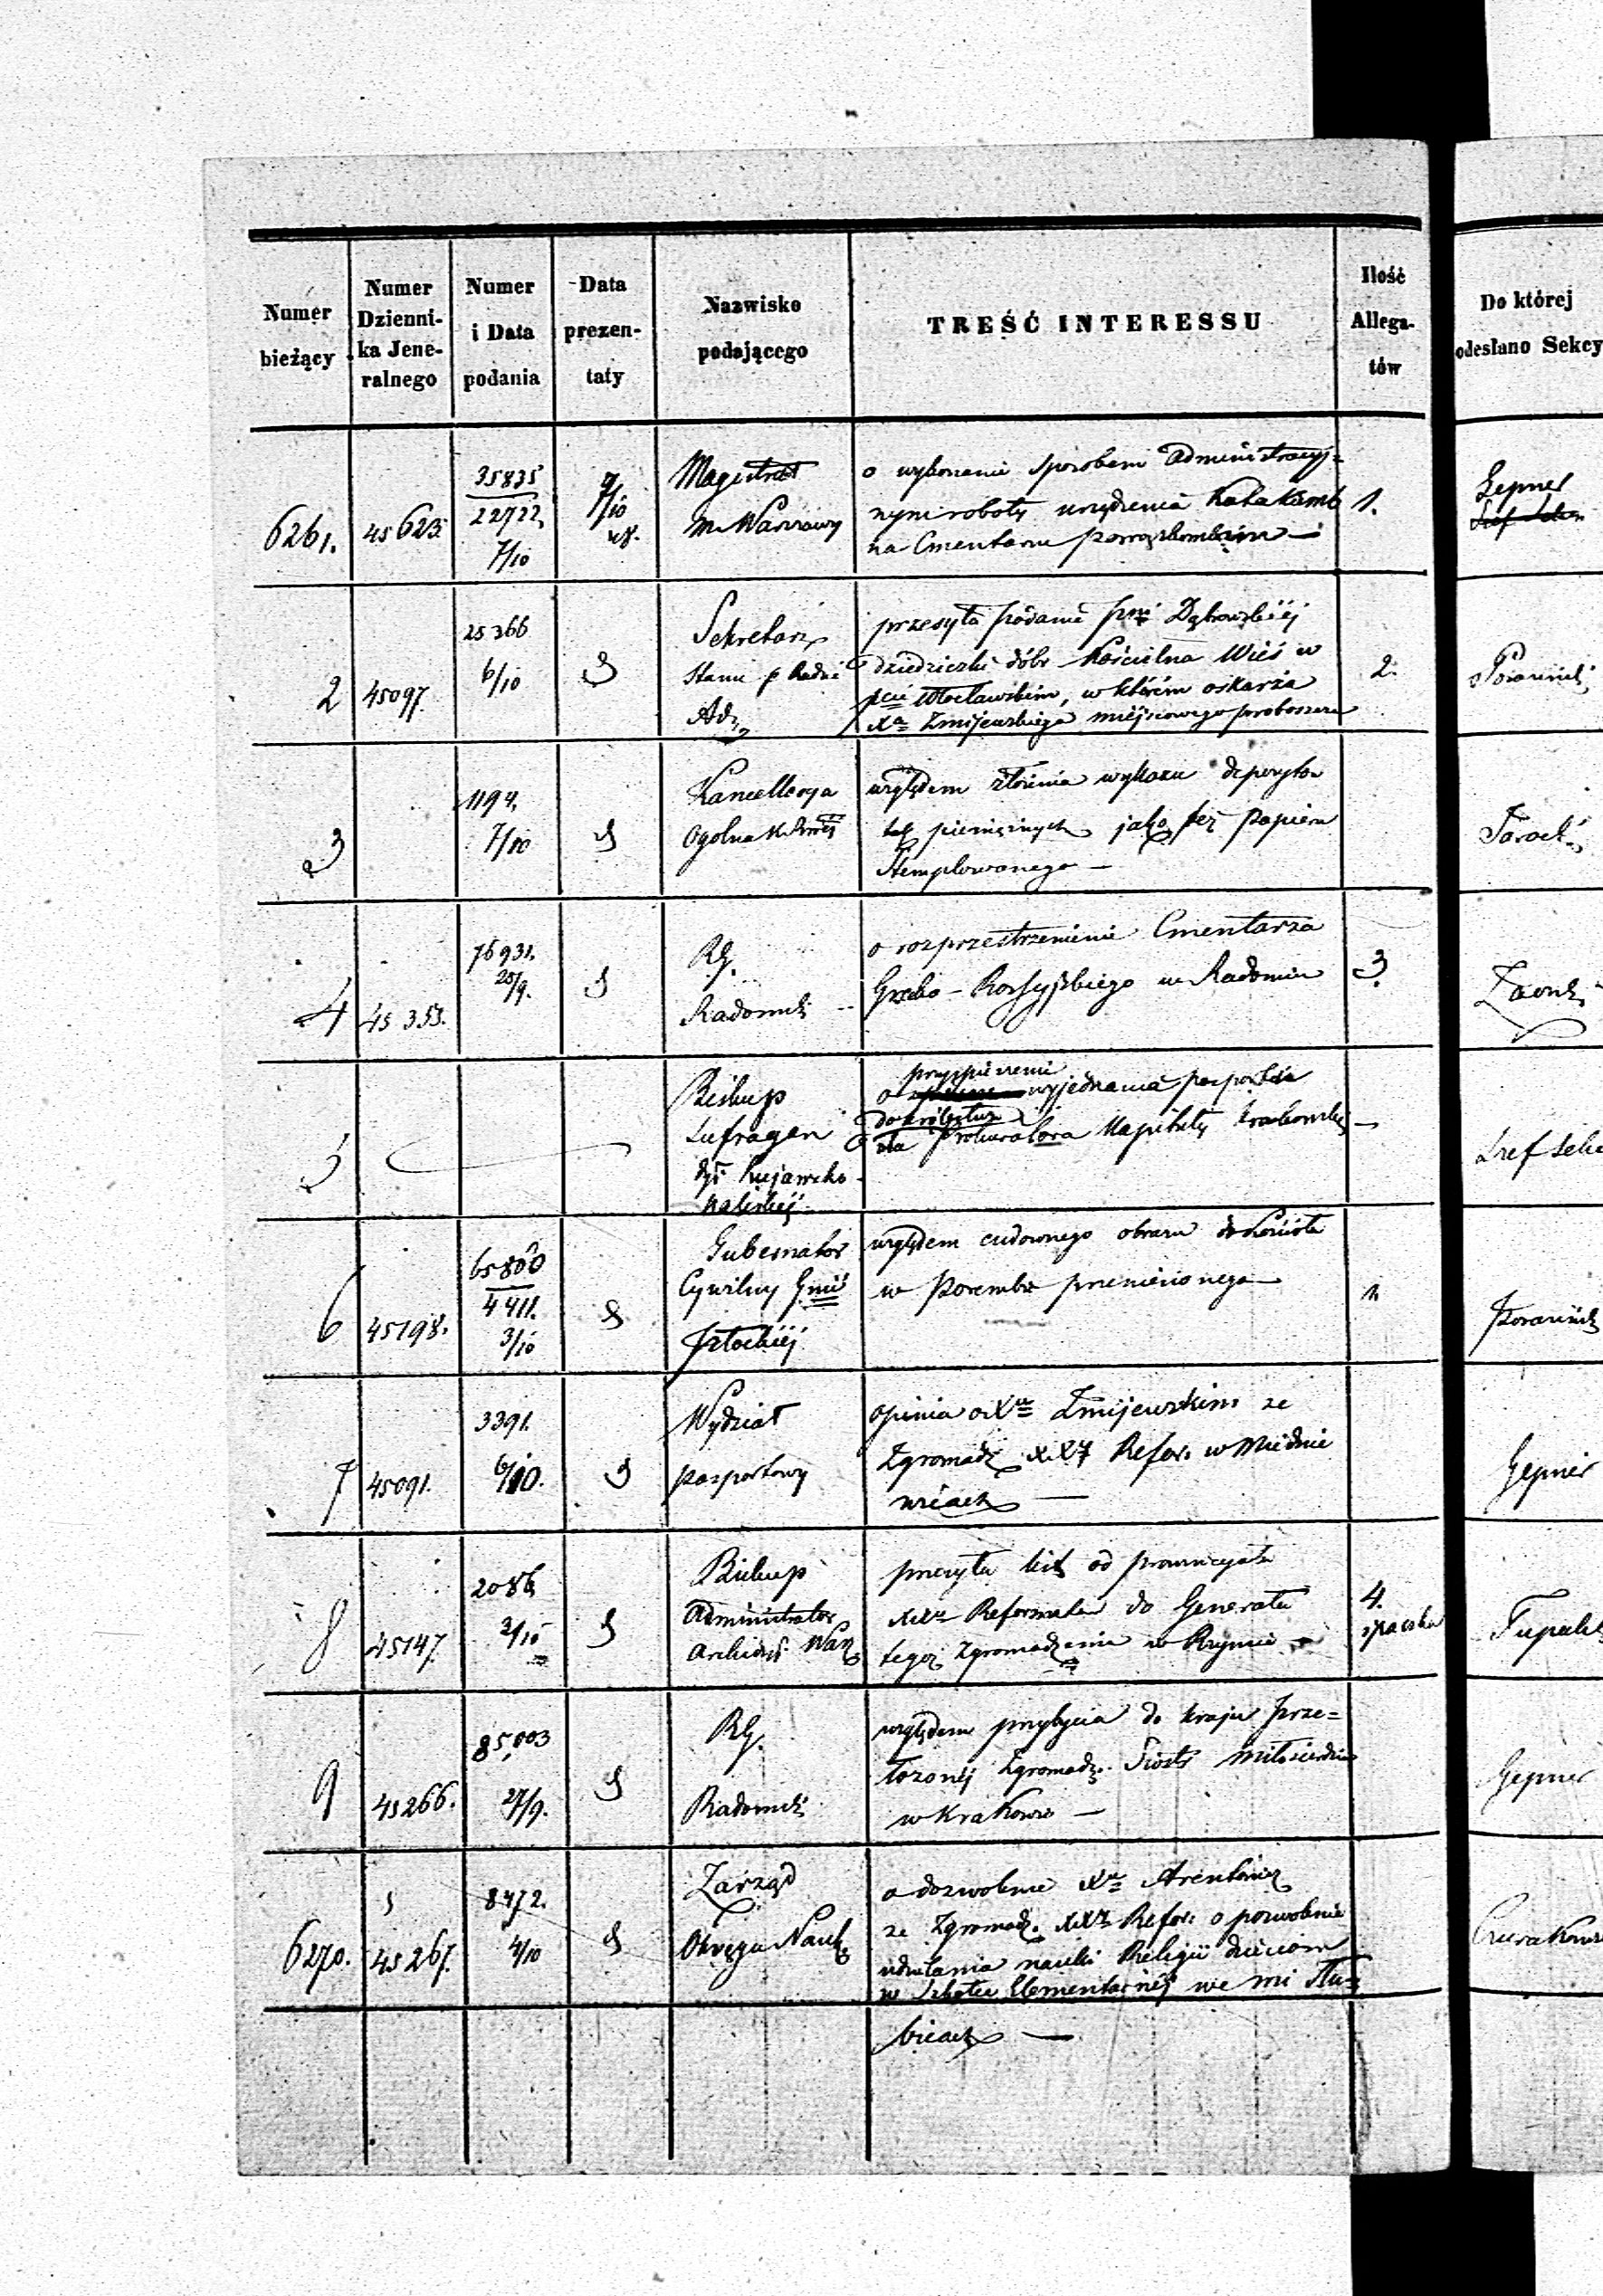 Numer bieżący
Numer Dzienni- ka Jene- ralnego
Numer i Data podania
Data prezen- taty
Nazwisko podającego
TREŚĆ INTERESSU
Ilość Allega- tów
Do której odesłano Sekcy
6261.
45623.
35835
22722
7/10
9/10
Magistrat
m. Warszawy
o wykonanie sposobem Administracyj=
nym roboty urządzenia Katakomb
na Cmentarzu Powązkowskim —
1.
Gepner
2
45097.
25366
6/10
Sekretarz
Stanu p Radzie
Adz
przesyła podanie pni Dąbrowskiéj
dziedziczki dóbr Kościelna Wieś w
pcie Włocławskim, w którém oskarża
Xa Żmijewskiego miejscowego proboszcza
2.
3
1194.
7/10
Kancellarya
Ogolna
względem złożenia wykazu depozytów
tak pieniężnych jako też papieru
Stemplowanego —
4
45 353.
76931.
20/9.
RG.
Radomsk
o rozprzestrzenienie Cmentarza
Greko-Rossyjskiego w Radomiu
3.
5
Biskup
Sufragan
dyi Kujawsko
Kaliskiéj
przyspieszenie
o wyjednania pasportu
do królestwa
dla Prokuratora Kapituły Krakowskiéj —
Szef Sekc
6
45198.
65800
4411.
3/10
Gubernator
Cywilny Gnii
Płockiéj
względem cudownego obrazu do Kościoła
w Porembie przeniesionego —
1.
7
45091.
3391.
6/10.
Wydział
pasportowy
opinia o Xu Żmijewskim ze
Zgromadz XX Refor. w Miednie
wicach —
Gepner
8
45147.
2086
2/10
Biskup
Administrator
Archidyi Warz
przesyła list od prowincyała
XXw Reformatów do Generała
tegoż Zgromadzenia w Rzymie —
4.
9
45266.
85,003
27/9.
RG.
Radomsk
względem przybycia do kraju Prze=
łożonéj Zgromadz. Sióstr Miłosierdzia
w Krakowie —
Gepner
6270.
45267.
8472.
4/10
Zarząd
Okręgu Nauk
o dozwolenie Xu
ze Zgromadz. XX Refor. o pozwolenie
udzielania nauki Religii dzieciom
w Szkołce Elementarnéj we wsi Słu=
bicach —